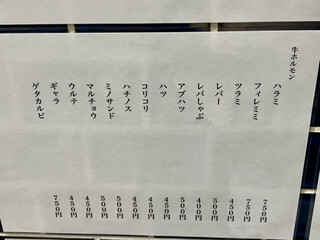 牛ホルモン
ハラミ 750円
フィレミミ 750円
ツラミ 450円
レバー 500円
レバしゃぶ 400円
アブハツ 500円
ハツ 450円
コリコリ 450円
ハチノス 500円
ミノサンド 500円
マルチョウ 450円
ウルテ 450円
ギャラ 450円
ゲタカルビ 750円